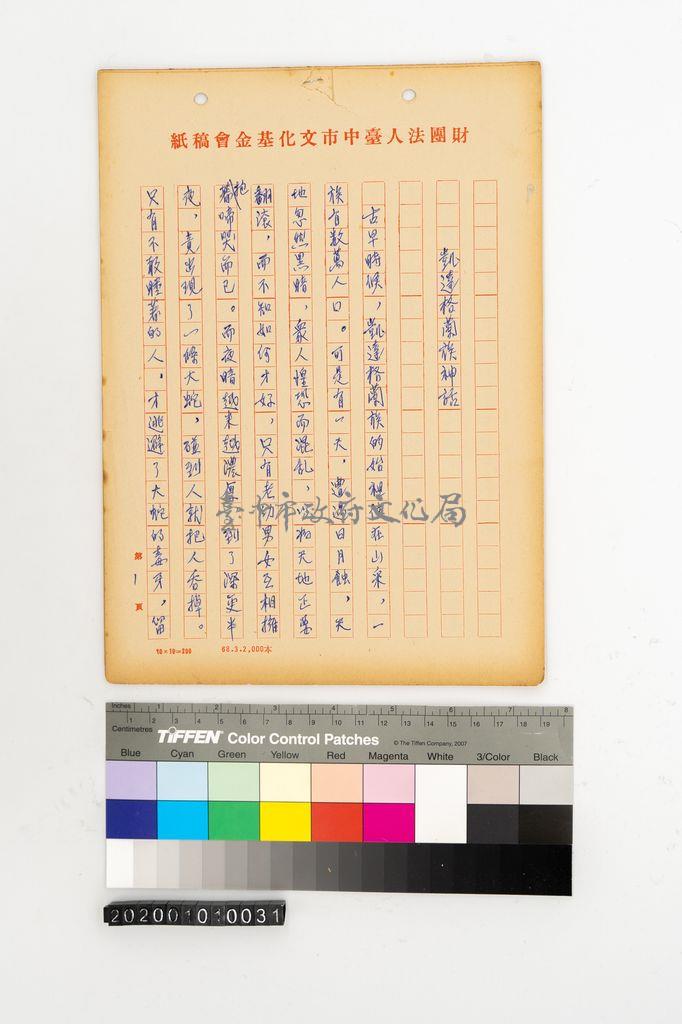 財團法人臺中市文化基金會稿紙
凱達格蘭族神話
古早時候，凱達格蘭族的始祖住在山采，一
族有數萬人口。可是有一天，遭遇日月蝕，天
地忽然黑暗，眾人惶恐而混乱，以為天地正要
翻滾，而不知如何才好，只有老幼男女互相擁
抱著啼哭而已。而夜暗越來越濃，到了深更半
夜，竟出現了一條大蛇，碰到人就把人吞掉。
只有不敢睡著的人，才逃避了大蛇的毒牙，留
第1頁
10×10=200
68.3.2,000本
臺中市政府文化局
Inches 1 2 3 4 5 6 7 8
Centimetres 1 2 3 4 5 6 7 8 9 10 11 12 13 14 15 16 17 18 19
TIFFEN Color Control Patches
© The Tiffen Company, 2007
Blue Cyan Green Yellow Red Magenta White 3/Color Black
202001010031